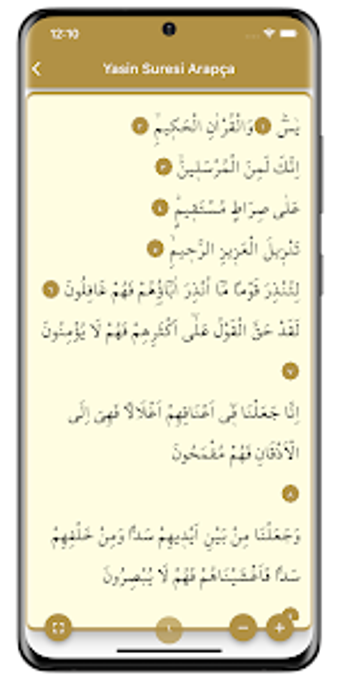 12:10
Yasin Suresi Arapça
يٰسٓ ١ وَالْقُرْاٰنِ الْحَكٖيمِ ٢
اِنَّكَ لَمِنَ الْمُرْسَلٖينَ ٣
عَلٰى صِرَاطٍ مُسْتَقٖيمٍ ٤
تَنْزٖيلَ الْعَزٖيزِ الرَّحٖيمِ ٥
لِتُنْذِرَ قَوْمًا مَٓا اُنْذِرَ اٰبَٓاؤُ۬هُمْ فَهُمْ غَافِلُونَ ٦
لَقَدْ حَقَّ الْقَوْلُ عَلٰٓى اَكْثَرِهِمْ فَهُمْ لَا يُؤْمِنُونَ
٧
اِنَّا جَعَلْنَا فٖٓى اَعْنَاقِهِمْ اَغْلَالًا فَهِىَ اِلَى
الْاَذْقَانِ فَهُمْ مُقْمَحُونَ
٨
وَجَعَلْنَا مِنْ بَيْنِ اَيْدٖيهِمْ سَدًّا وَمِنْ خَلْفِهِمْ
سَدًّا فَاَغْشَيْنَاهُمْ فَهُمْ لَا يُبْصِرُونَ